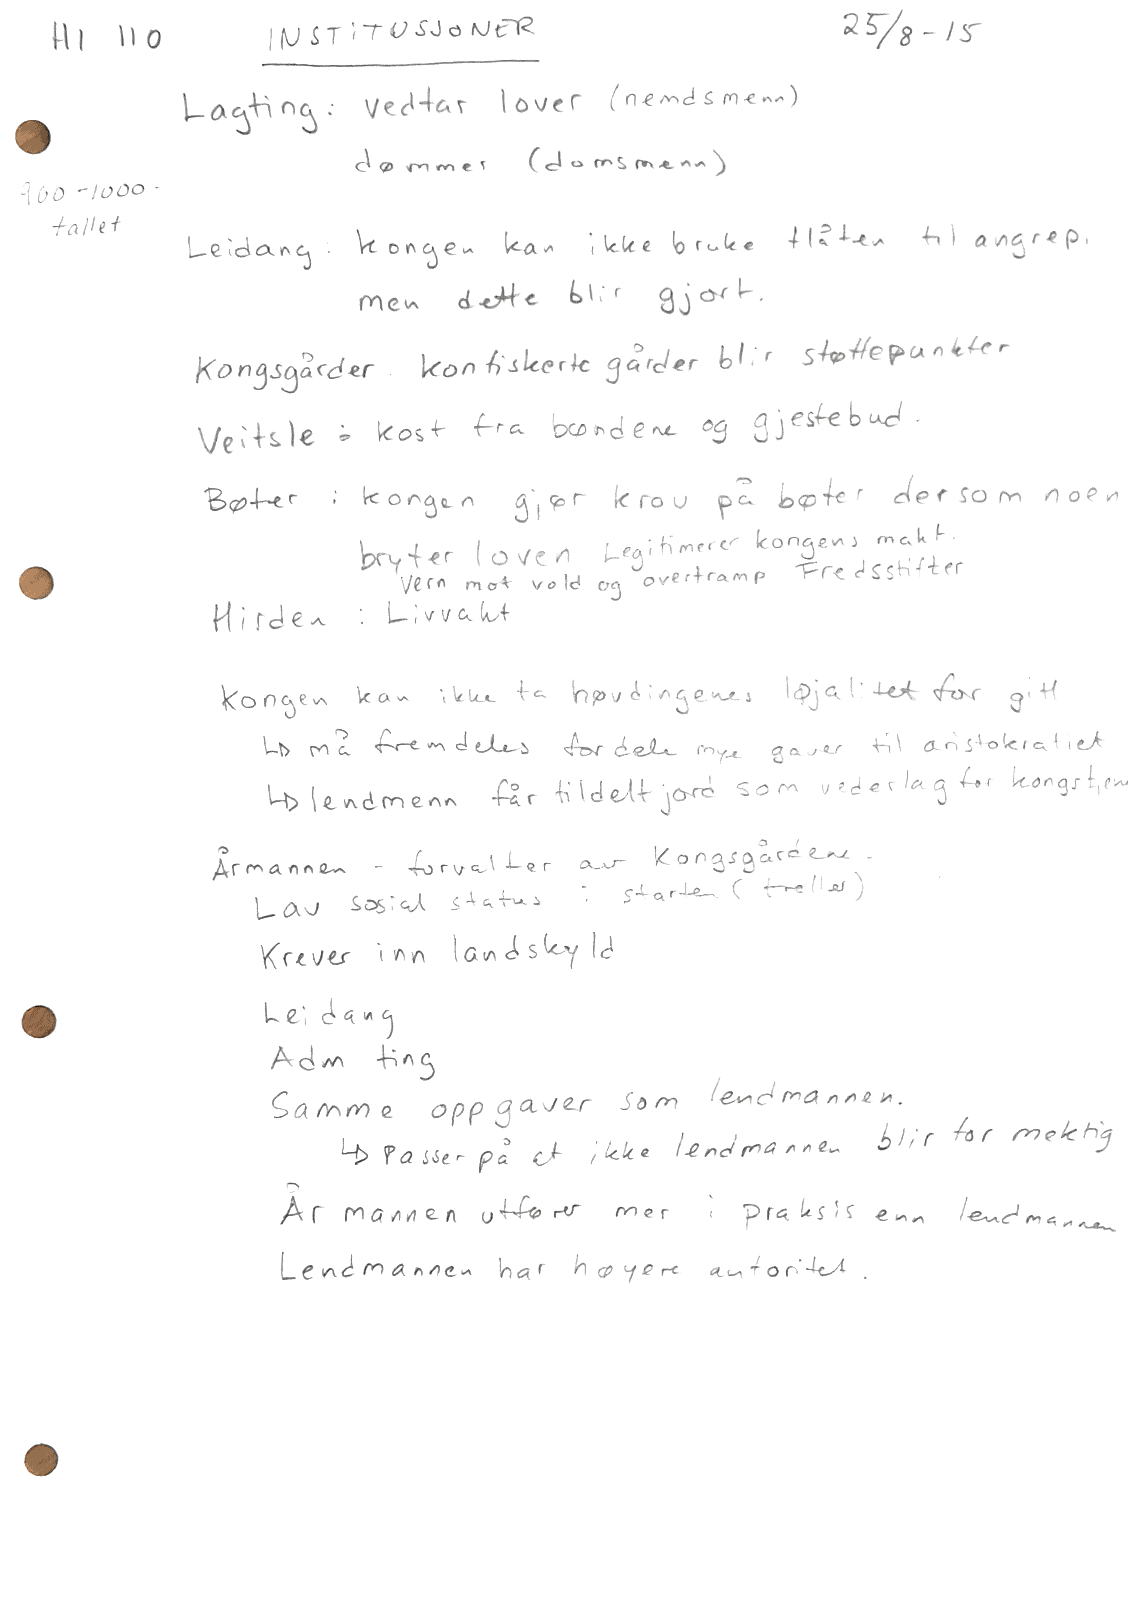 HI 110 INSTITUSJONER 25/8-15
Lagting: vedtar lover (nemdsmenn)
dømmer (domsmenn)
900-1000-
tallet
Leidang: kongen kan ikke bruke flåten til angrep.
men dette blir gjort.
Kongsgårder. konfiskerte gårder blir støttepunkter
Veitsle: kost fra bøndene og gjestebud.
Bøter: kongen gjør krav på bøter dersom noen
bryter loven Legitimerer kongens makt.
Vern mot vold og overtramp Fredsstifter
Hirden: Livvakt
Kongen kan ikke ta høvdingenes løjalitet for gitt
↳ må fremdeles fordele mye gaver til aristokratiet
↳ lendmenn får tildelt jord som vederlag for kongstjen
Årmannen - forvalter av Kongsgårdene.
Lav sosial status i starten (treller)
Krever inn landskyld
Leidang
Adm ting
Samme oppgaver som lendmannen.
↳ Passer på at ikke lendmannen blir for mektig
Årmannen utfører mer i praksis enn lendmannen
Lendmannen har høyere autoritet.